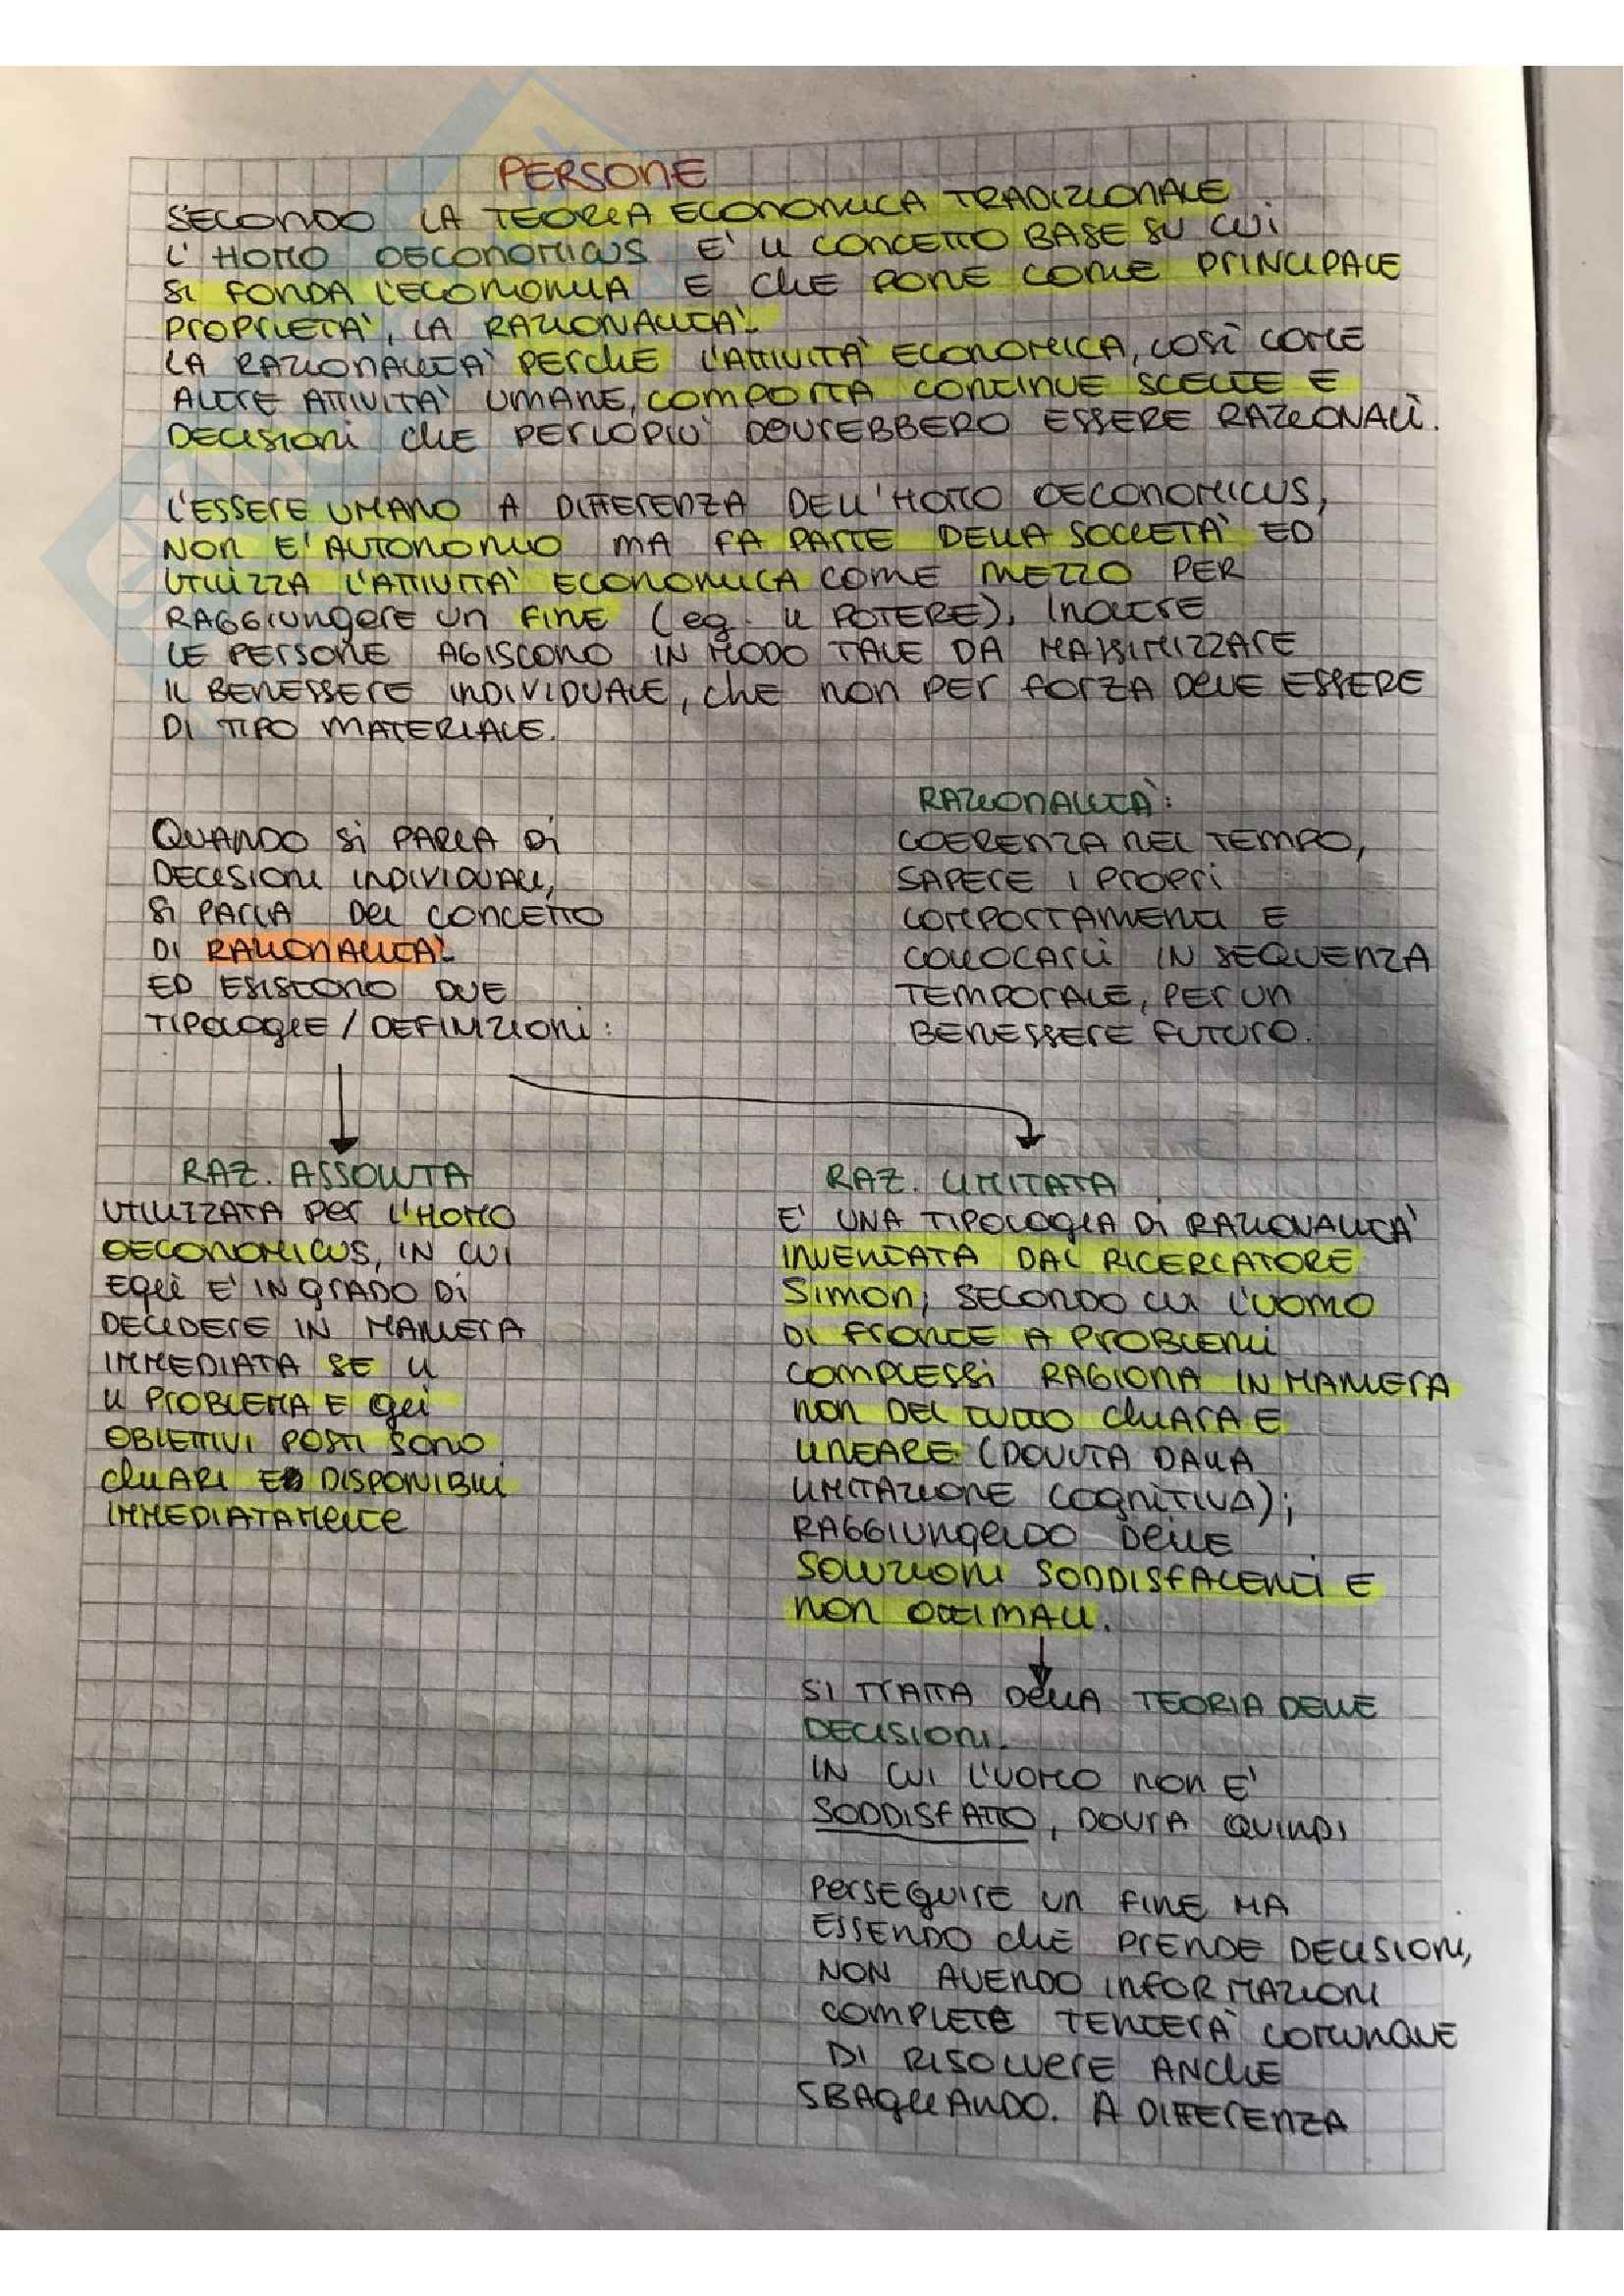 PERSONE
SECONDO LA TEORIA ECONOMICA TRADIZIONALE
L'HOMO OECONOMICUS E' IL CONCETTO BASE SU CUI
SI FONDA L'ECONOMIA E CHE PONE COME PRINCIPALE
PROPRIETA', LA RAZIONALITA'.
LA RAZIONALITA' PERCHE L'ATTIVITA' ECONOMICA, COSÌ COME
ALTRE ATTIVITA' UMANE, COMPORTA CONTINUE SCELTE E
DECISIONI CHE PERLOPIU' DOVREBBERO ESSERE RAZIONALI.
L'ESSERE UMANO A DIFFERENZA DELL'HOMO OECONOMICUS,
NON E' AUTONOMO MA FA PARTE DELLA SOCIETA' ED
UTILIZZA L'ATTIVITA' ECONOMICA COME MEZZO PER
RAGGIUNGERE UN FINE (eg. IL POTERE). INOLTRE
LE PERSONE AGISCONO IN MODO TALE DA MASSIMIZZARE
IL BENESSERE INDIVIDUALE, CHE NON PER FORZA DEVE ESSERE
DI TIPO MATERIALE.
QUANDO SI PARLA DI
DECISIONI INDIVIDUALI,
SI PARLA DEL CONCETTO
DI RAZIONALITA'
ED ESISTONO DUE
TIPOLOGIE / DEFINIZIONI:
RAZIONALITÀ:
COERENZA NEL TEMPO,
SAPERE I PROPRI
COMPORTAMENTI E
COLLOCARLI IN SEQUENZA
TEMPORALE, PER UN
BENESSERE FUTURO.
RAZ. ASSOLUTA
UTILIZZATA PER L'HOMO
OECONOMICUS, IN CUI
EGLI E' IN GRADO DI
DECIDERE IN MANIERA
IMMEDIATA SE IL
IL PROBLEMA E GLI
OBIETTIVI POSTI SONO
CHIARI ED DISPONIBILI
IMMEDIATAMENTE
RAZ. LIMITATA
E' UNA TIPOLOGIA DI RAZIONALITA'
INVENTATA DAL RICERCATORE
SIMON, SECONDO CUI L'UOMO
DI FRONTE A PROBLEMI
COMPLESSI RAGIONA IN MANIERA
NON DEL TUTTO CHIARA E
LINEARE (DOVUTA DALLA
LIMITAZIONE COGNITIVA);
RAGGIUNGENDO DELLE
SOLUZIONI SODDISFACENTI E
NON OTTIMALI.
SI TRATTA DELLA TEORIA DELLE
DECISIONI.
IN CUI L'UOMO NON E'
SODDISFATTO, DOVRA QUINDI
PERSEGUIRE UN FINE MA
ESSENDO CHE PRENDE DECISIONI,
NON AVENDO INFORMAZIONI
COMPLETE TENTERA' COMUNQUE
DI RISOLVERE ANCHE
SBAGLIANDO. A DIFFERENZA